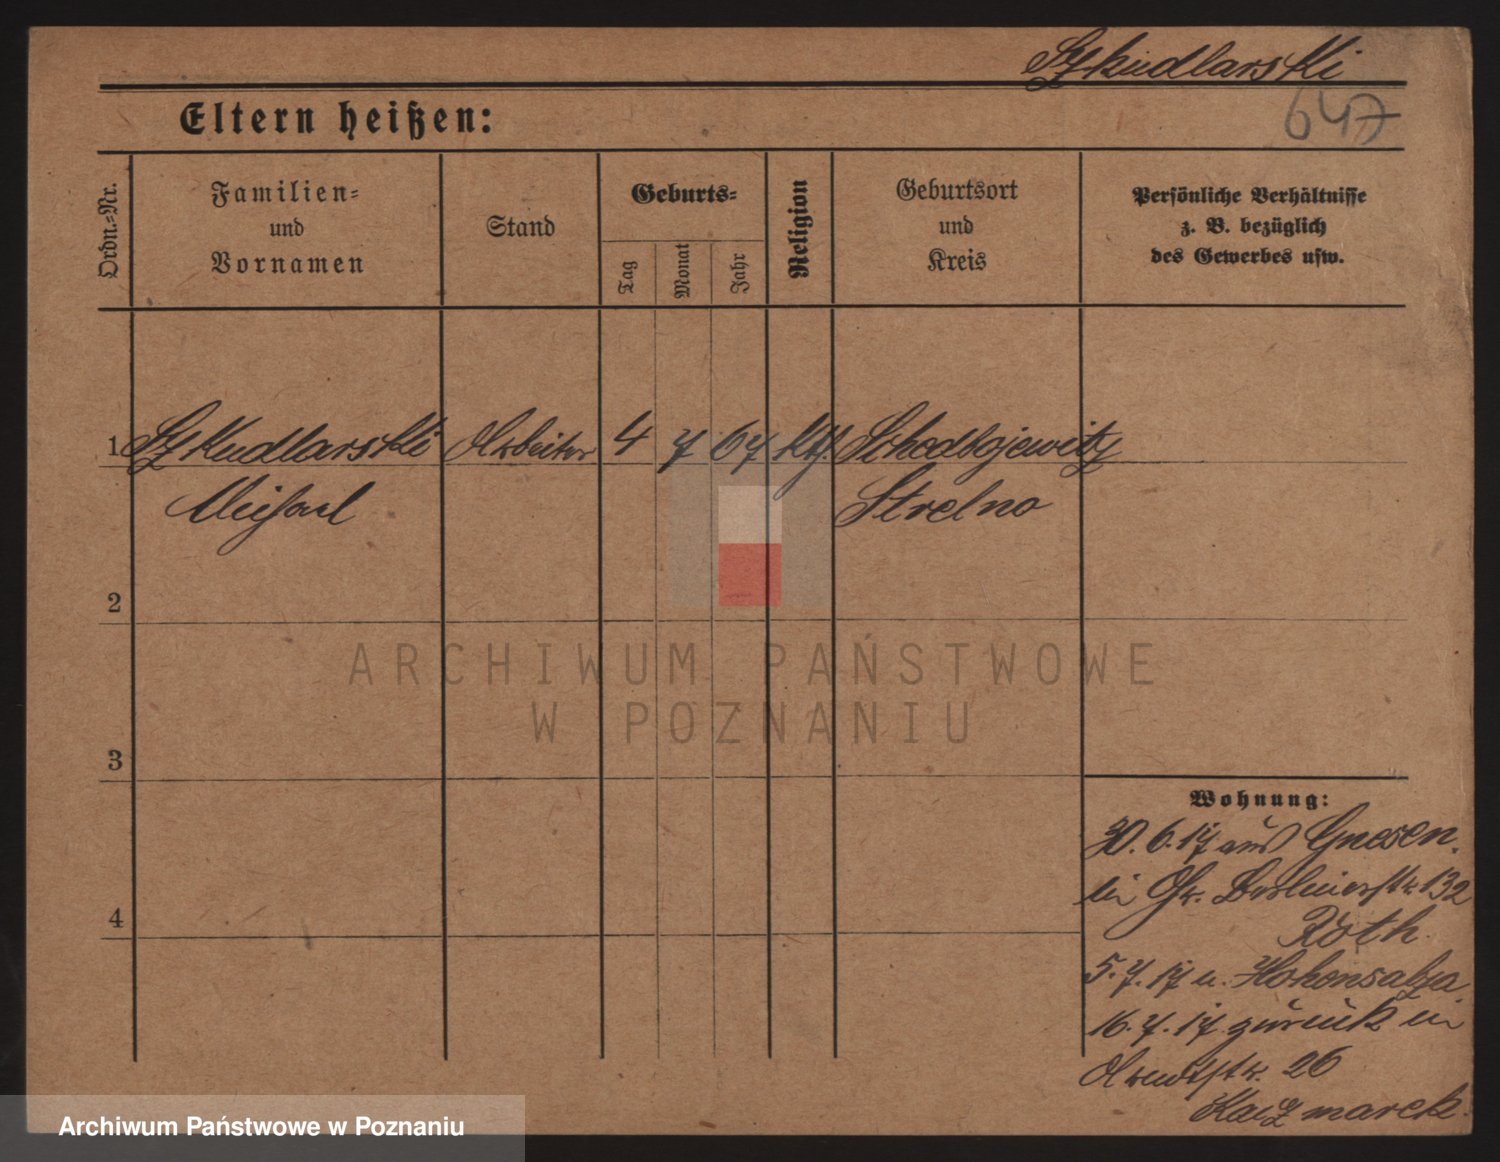 Szkudlarski
647
Eltern heißen:
Ordn.-Nr.
Familien-
und
Vornamen
Stand
Geburts-
Tag
Monat
Jahr
Religion
Geburtsort
und
Kreis
Persönliche Verhältnisse
z. B. bezüglich
des Gewerbes usw.
1 Szkudlarski Arbeiter 4 7 67 kth.
Michael Strelno
2
3
4
Wohnung:
30.6.17 aus Gnesen.
in Gr. Berlinerstr. 132
Roth.
5.7.17 n. Hohensalza
16.7.17 zurück in
26
Kaczmarek.
ARCHIWUM PAŃSTWOWE
W POZNANIU
Archiwum Państwowe w Poznaniu